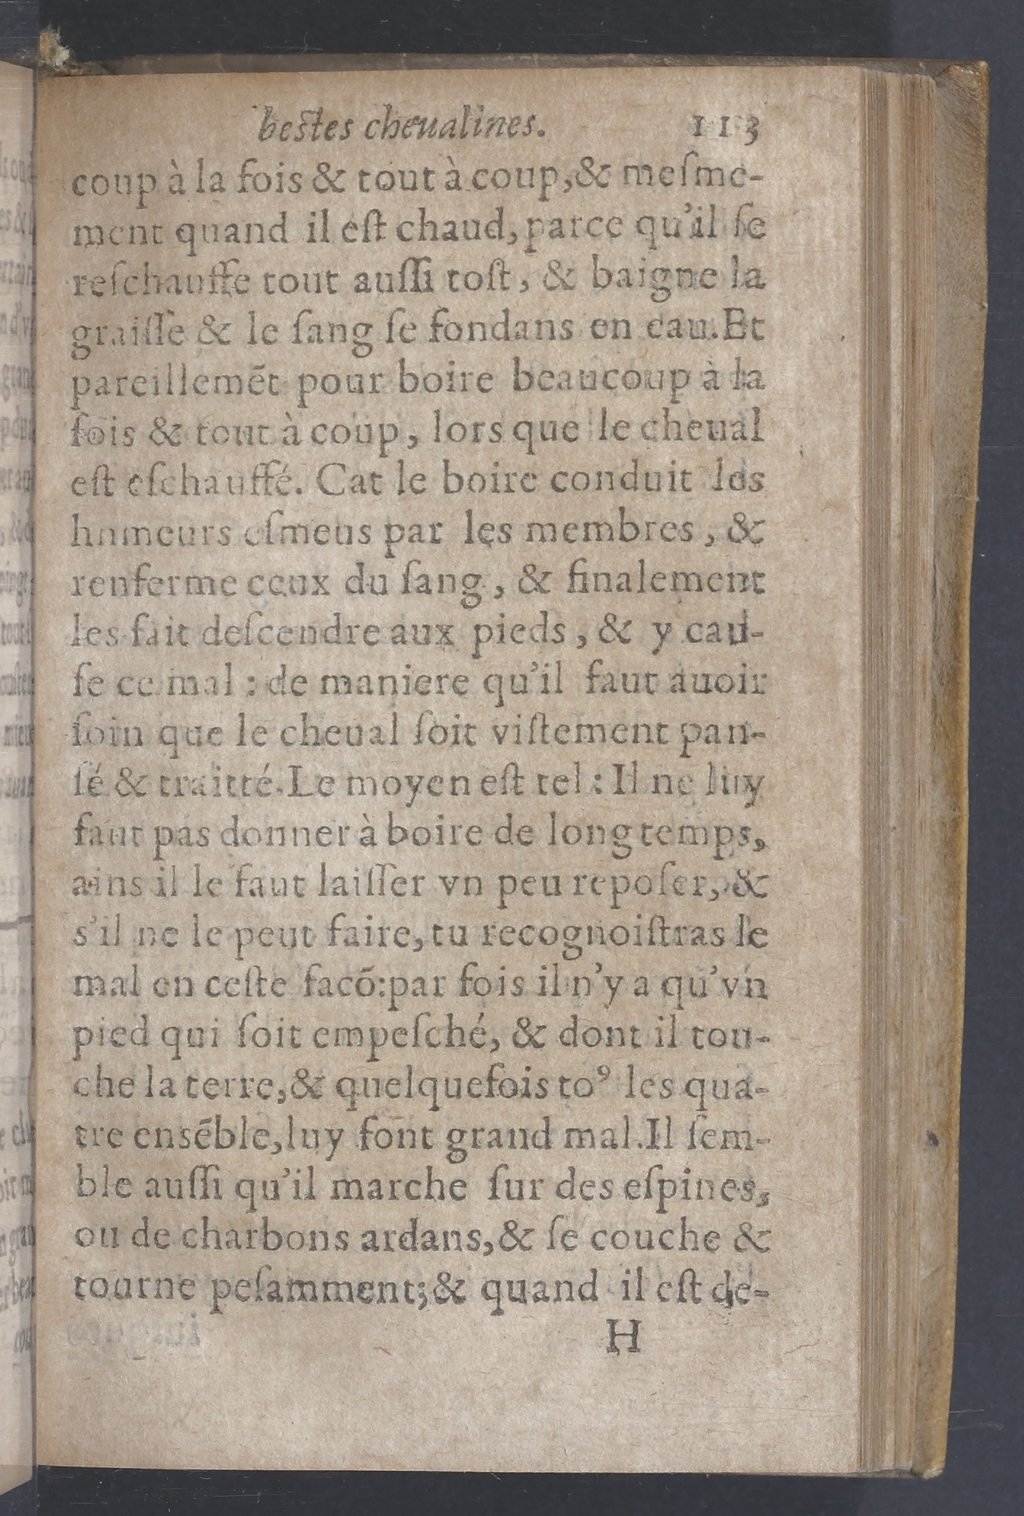 bestes cheualines. 113
coup à la fois & tout à coup,& meſme-
ment quand il eſt chaud, parce qu'il ſe
reſchauffe tout auſſi toſt, & baigne la
graiſſe & le ſang ſe fondans en eau.Et
pareillemēt pour boire beaucoup à la
fois & tout à coup, lors que le cheual
eſt eſchauffé. Cat le boire conduit les
humeurs eſmeus par les membres, &
renferme ceux du ſang, & finalement
les fait deſcendre aux pieds, & y cau-
ſe ce mal : de maniere qu'il faut auoir
ſoin que le cheual ſoit viſtement pan-
ſé & traitté.Le moyen eſt tel : Il ne luy
faut pas donner à boire de long temps,
ains il le faut laiſſer vn peu repoſer, &
s'il ne le peut faire, tu recognoiſtras le
mal en ceſte facō:par fois il n'y a qu'vn
pied qui ſoit empeſché, & dont il tou-
che la terre,& quelquefois toꝰ les qua-
tre enſēble,luy font grand mal.Il ſem-
ble auſſi qu'il marche ſur des eſpines,
ou de charbons ardans,& ſe couche &
tourne peſamment;& quand il eſt de-
H